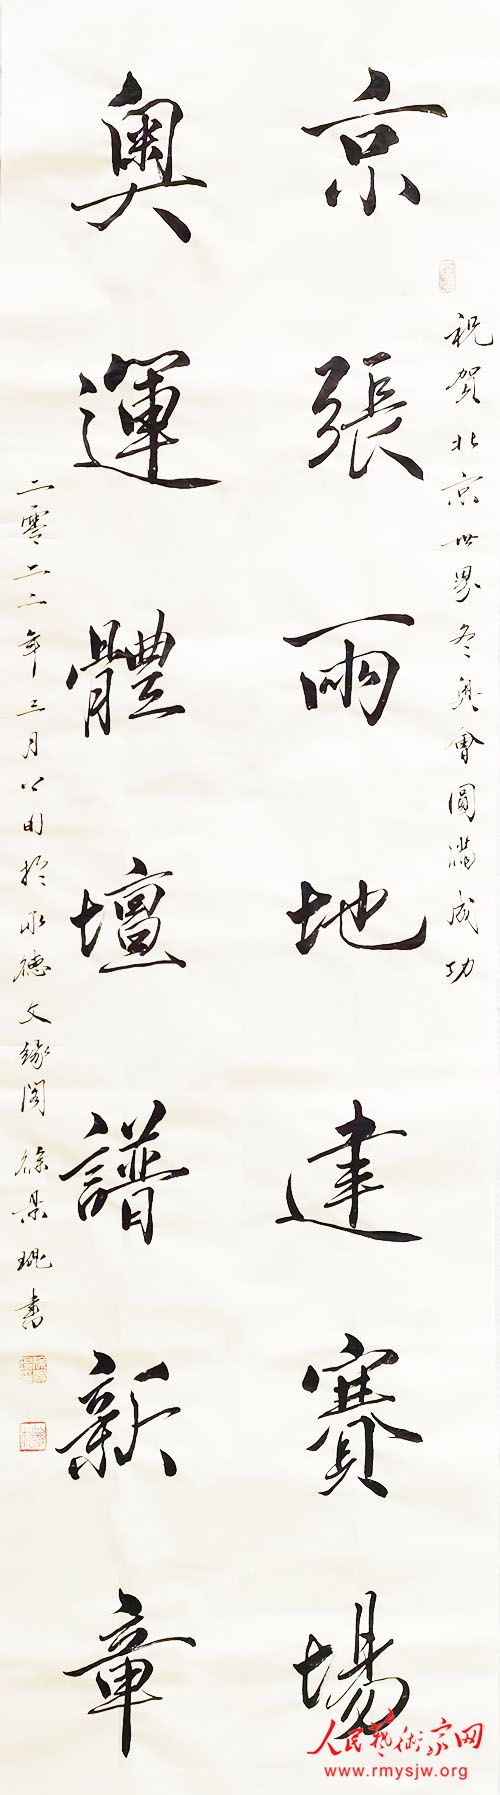 祝贺北京世界冬奥會圓满成功
京張兩地建賽場
奧運體壇譜新章
二零二二年三月於承德文緣阁 徐景書
人民藝術家网
www.rmysjw.org